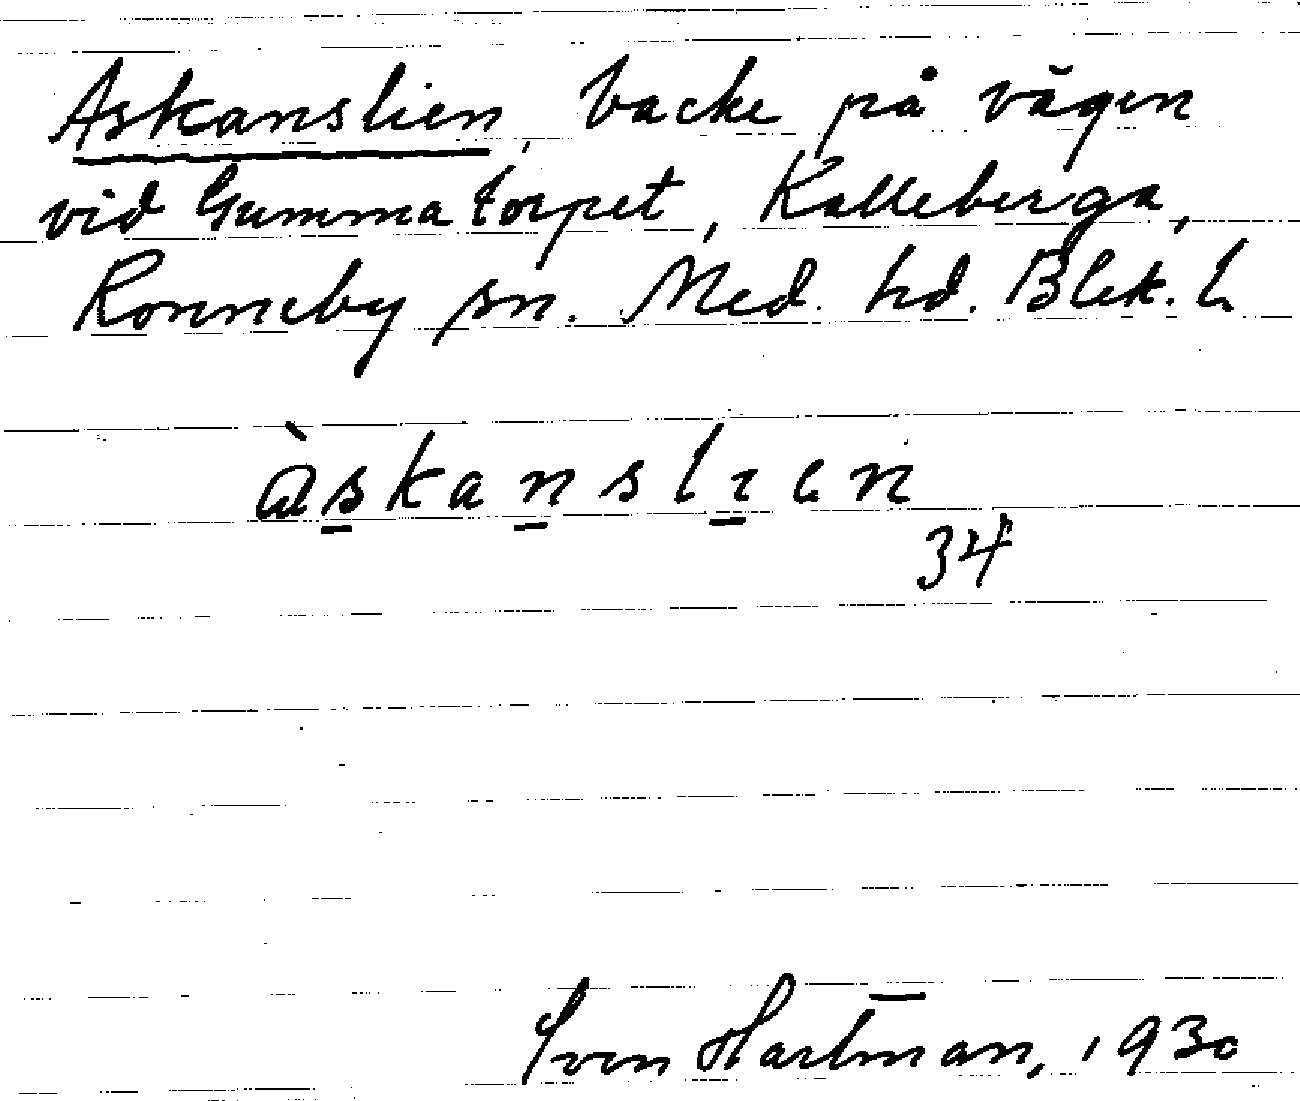 Askanslien, backe på vägen
vid Gummatorpet, Kalleberga,
Ronneby sn. Med. hd. Blek. l.
àskanslıen
34
Sven Hartman, 1930